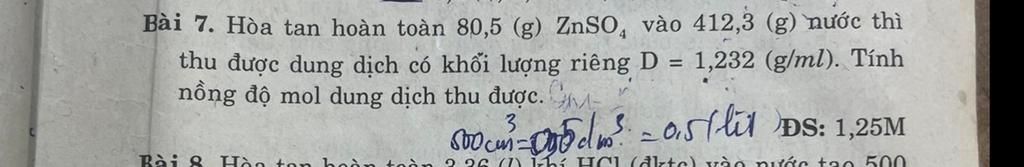 Bài 7. Hòa tan hoàn toàn 80,5 (g) ZnSO₄ vào 412,3 (g) nước thì
thu được dung dịch có khối lượng riêng D = 1,232 (g/ml). Tính
nồng độ mol dung dịch thu được.
500cm³ = 0,5dm³ = 0.5(lít) ĐS: 1,25M
Bài 8. Hòa tan hoàn toàn 3,36 (l) khí HCl (đktc) vào nước tạo 500